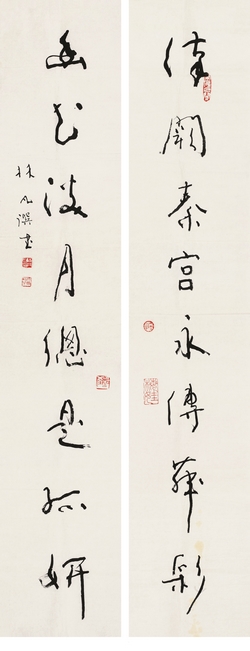 漢闕秦宮永傳華彩
幽花淡月總是孤妍
林凡撰書